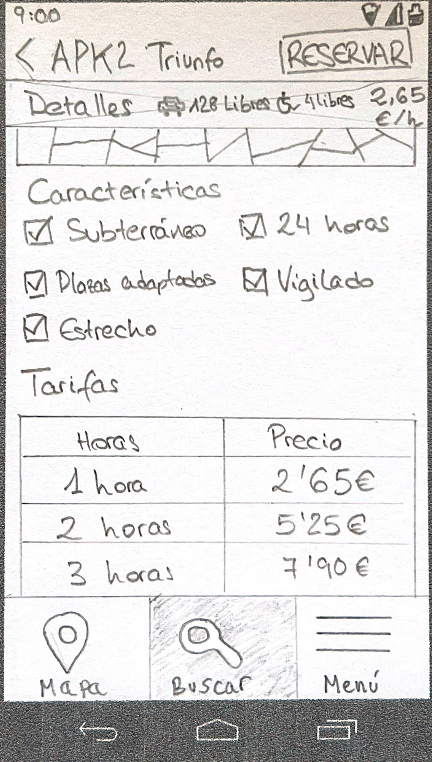 9:00
< APK2 Triunfo RESERVAR
Detalles 128 Libres 4 libres 2,65 €/h
Características
Subterráneo 24 horas
Plazas adaptadas Vigilado
Estrecho
Tarifas
Horas Precio
1 hora 2'65€
2 horas 5'25€
3 horas 7'90€
Mapa Buscar Menú